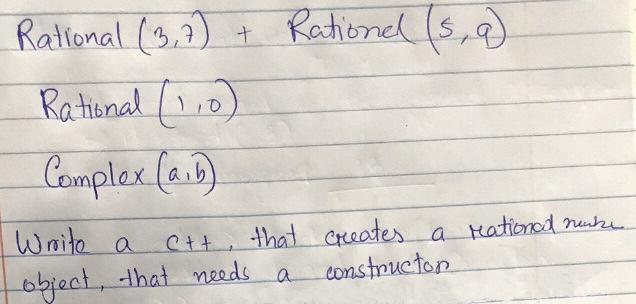 Rational (3,7) + Rationel (5,9)
Rational (1,0)
Complex (a,b)
Write a C++, that creates a rational
object, that needs a constructor